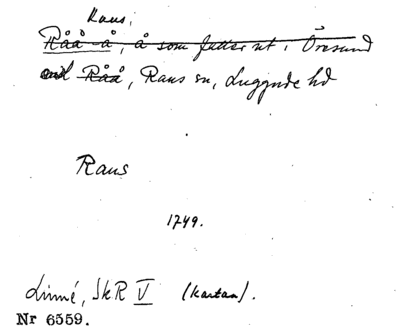 Raus,
Råå-å, å som faller ut i Öresund
vid Råå, Raus sn, Luggude hd
Raus
1749.
Linné, SkR V (kartan).
Nr 6559.